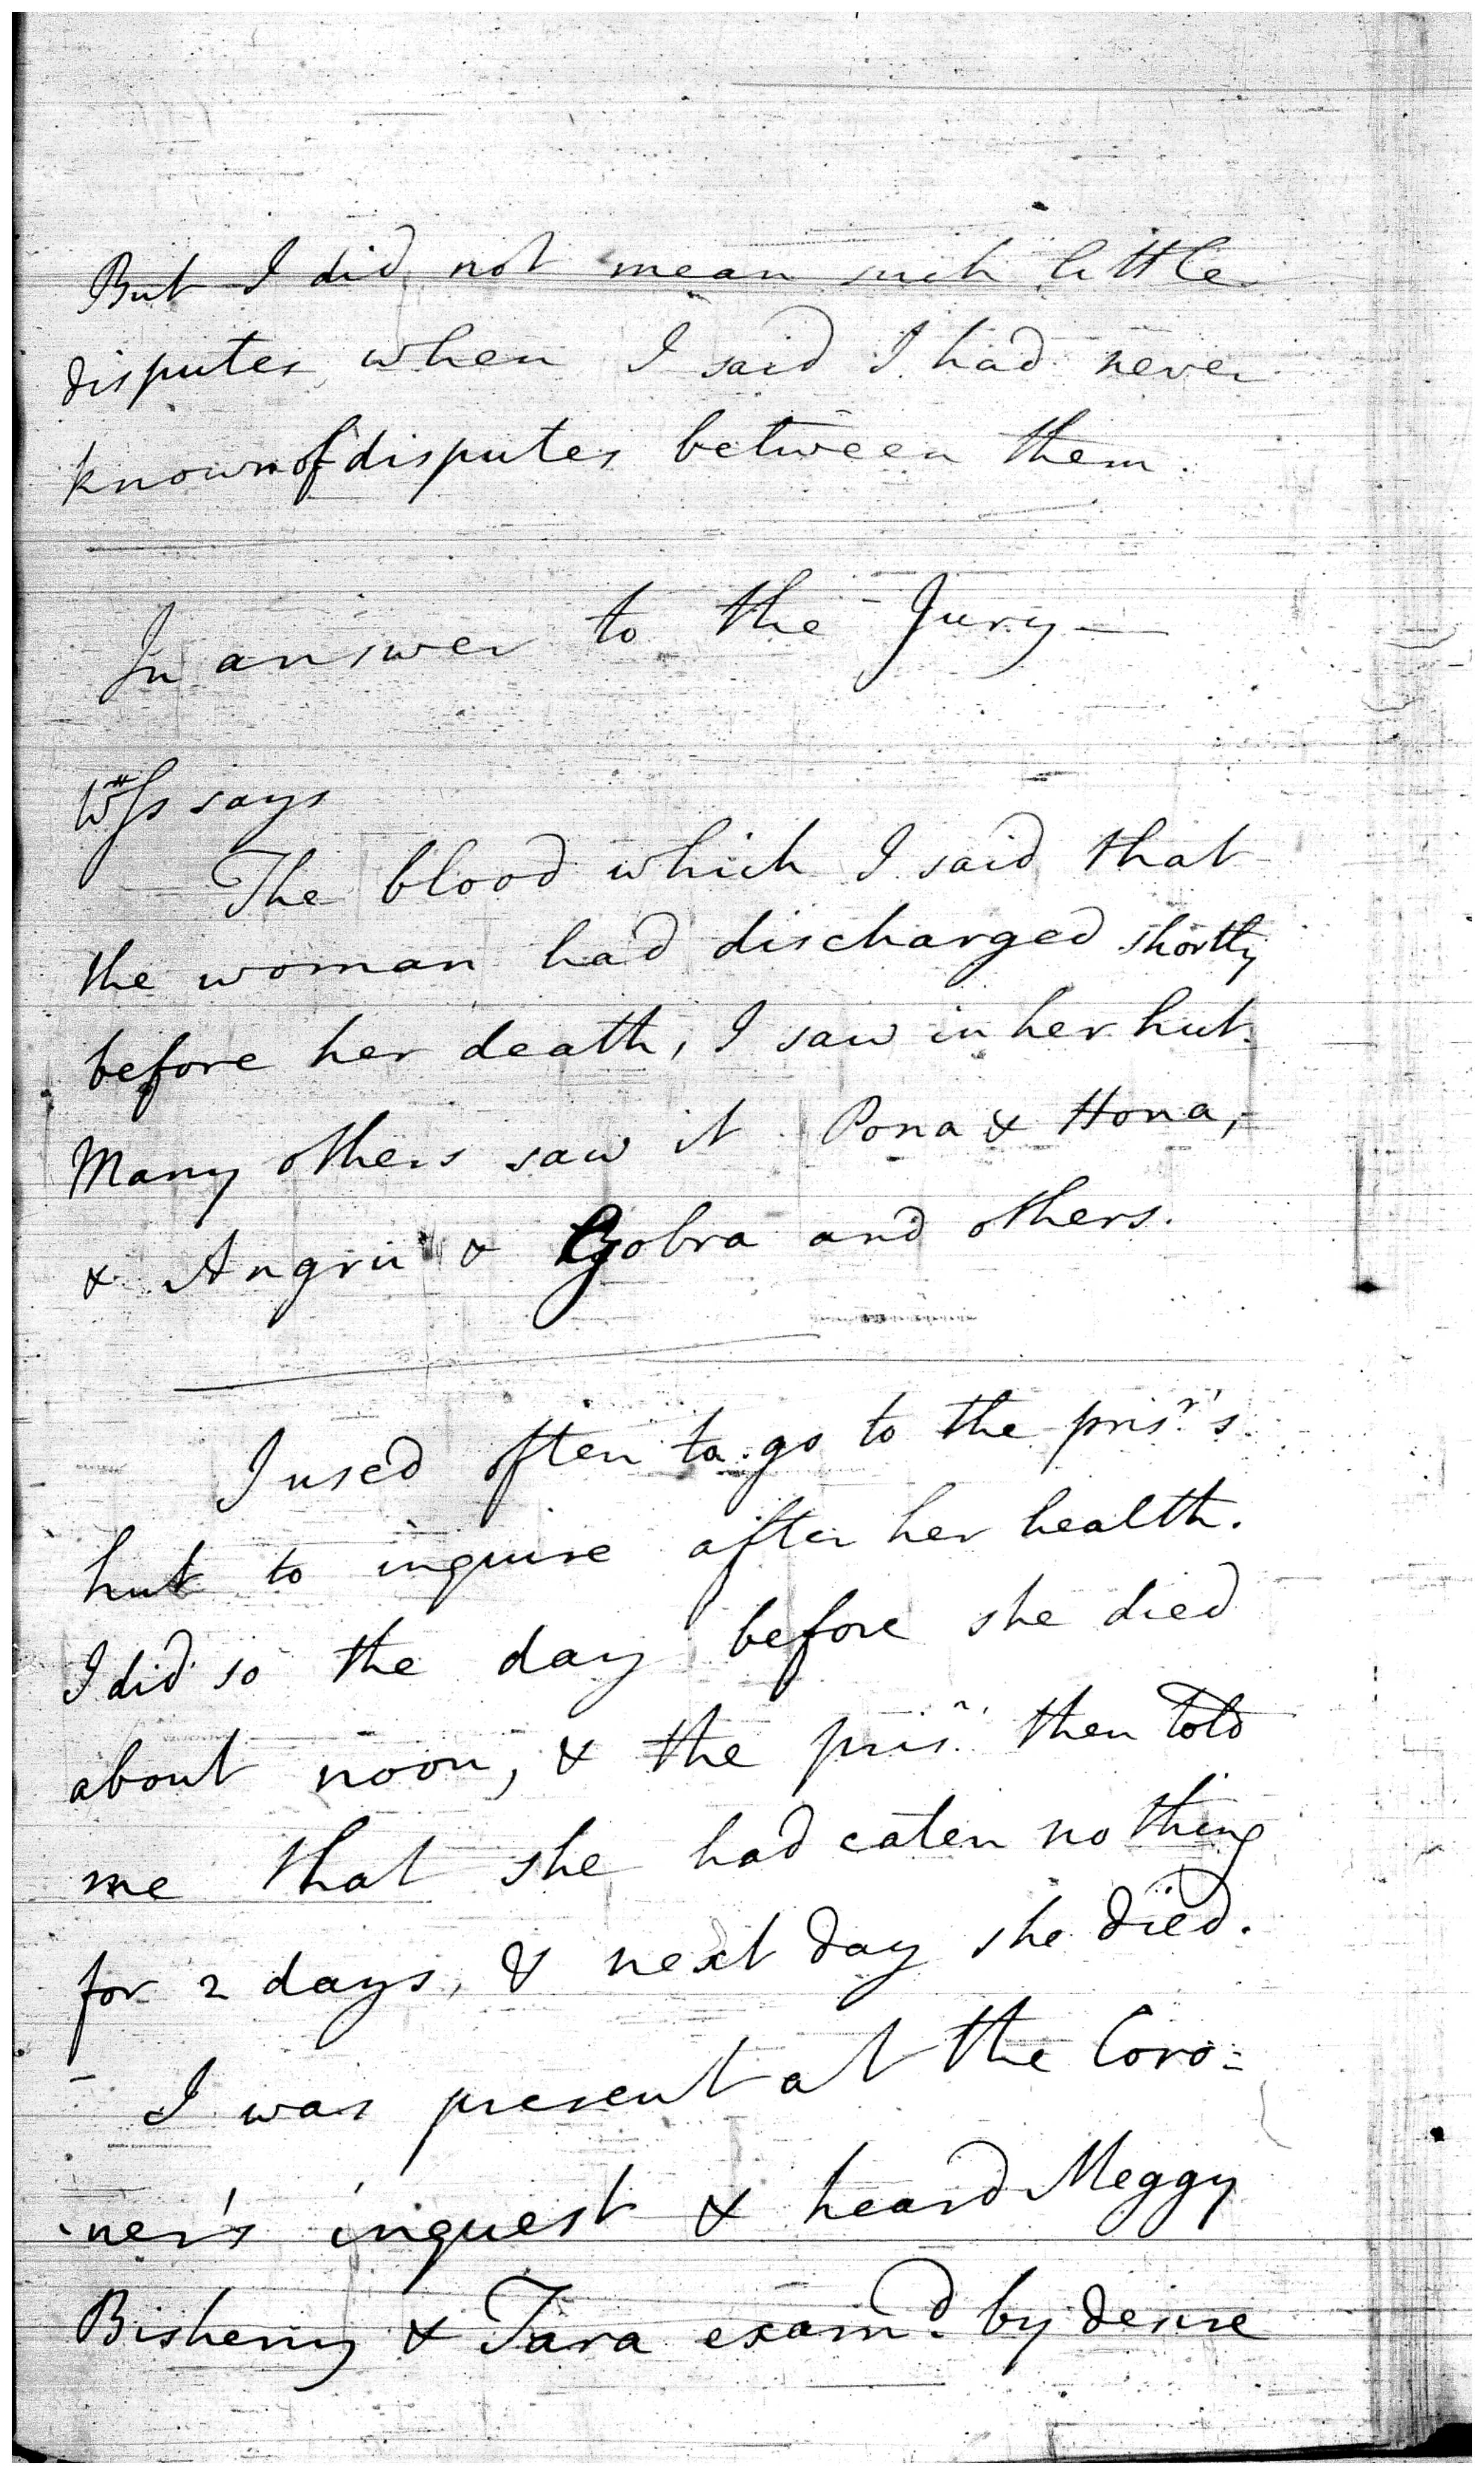 But I did not mean such little
disputes when I said I had never
known of disputes between them.
In answer to the Jury—
Wtss says
The blood which I said that
the woman had discharged shortly
before her death, I saw in her hut.
Many others saw it Pona & Hona,
& Angrii & Gobra and others.
I used often to go to the prisr's
hut to inquire after her health.
I did so the day before she died
about noon, & the prisr. then told
me that she had eaten nothing
for 2 days, & next day she died.
I was present at the Coro=
ner's inquest & heard Meggy
Bisheny & Tara examd. by desire